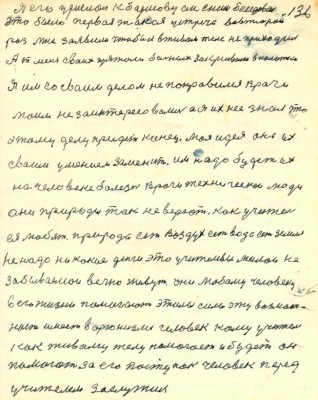 136
Я его приемом к Баршову он сним беседов.
Это было первая такая встреча вовторой
раз мне заявили чтобы я втиком теле не приходил
А
Я им со своим делом не понравился врачи
моим не заинтересовались а я их нее знал что
этому делу придет конец. моя идея она их
своим умением заменит. им надо будет их
на человеке болезн врачи технически люди
они природы так не верют. как учител
ея любят. природа ест воздух ест вода ест земля
не надо ни какие деги это учителя милои не
забываемои вечно живут они любому человеку
в его жизни помогают этими силами эту возмож-
ност имеют в организме человек кому учител
как живому телу помогает и будет он
помогат за его поступок человек перед
учителем заслужил